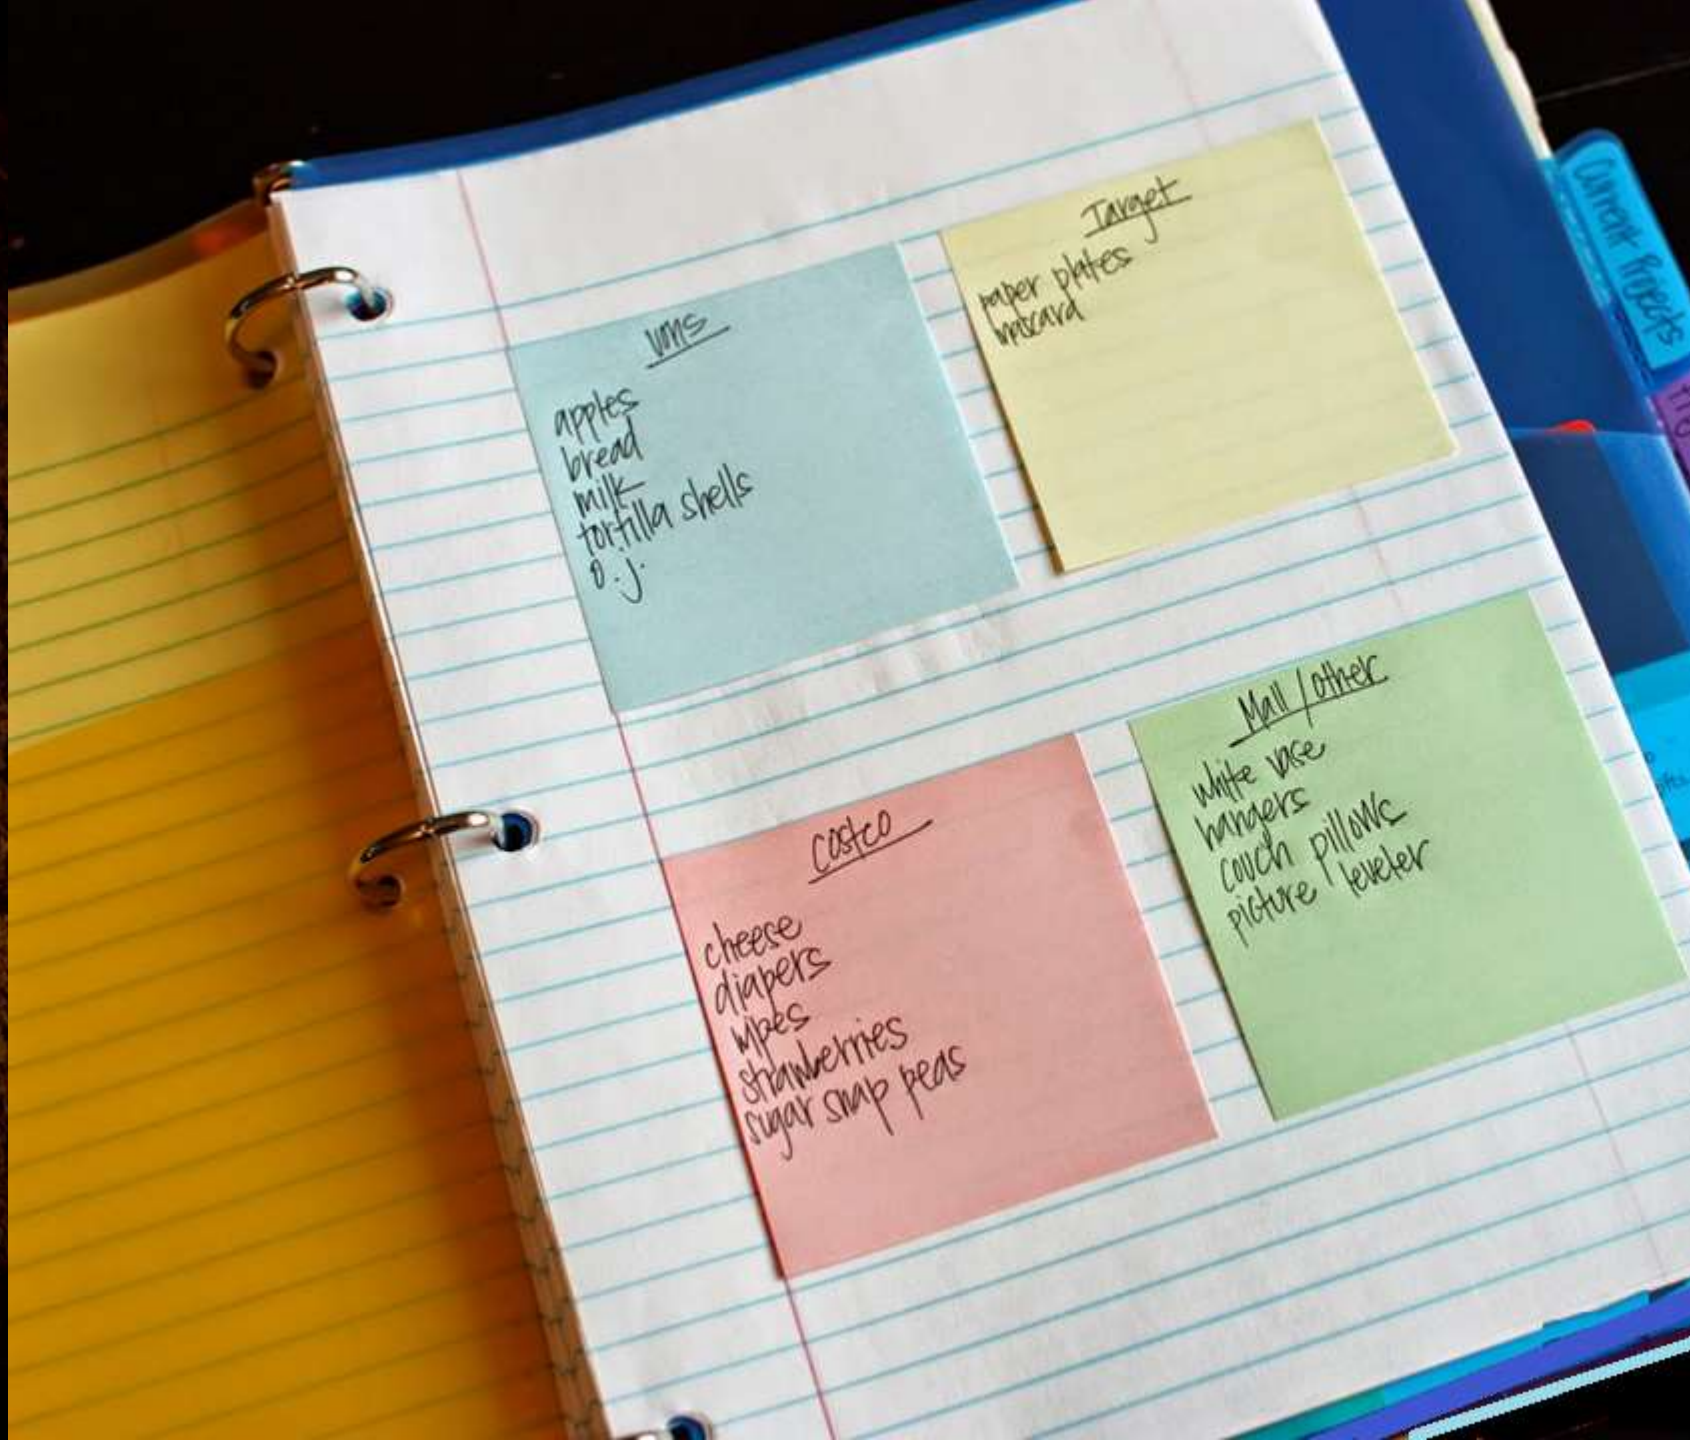 Vons
apples
bread
milk
tortilla shells
o.j.
Target
paper plates
mascara
Costco
cheese
diapers
wipes
strawberries
sugar snap peas
Mall / other
white vase
hangers
couch pillows
picture leveler
Current Projects